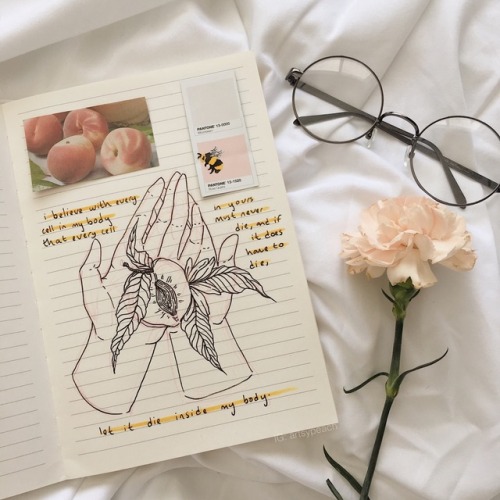 PANTONE 13-0000
PANTONE 13-1520
i believe with every
cell in my body
that every cell
in yours
must never
die, and if
it does
have to
die,
let it die inside my body.
IG: artsypeach